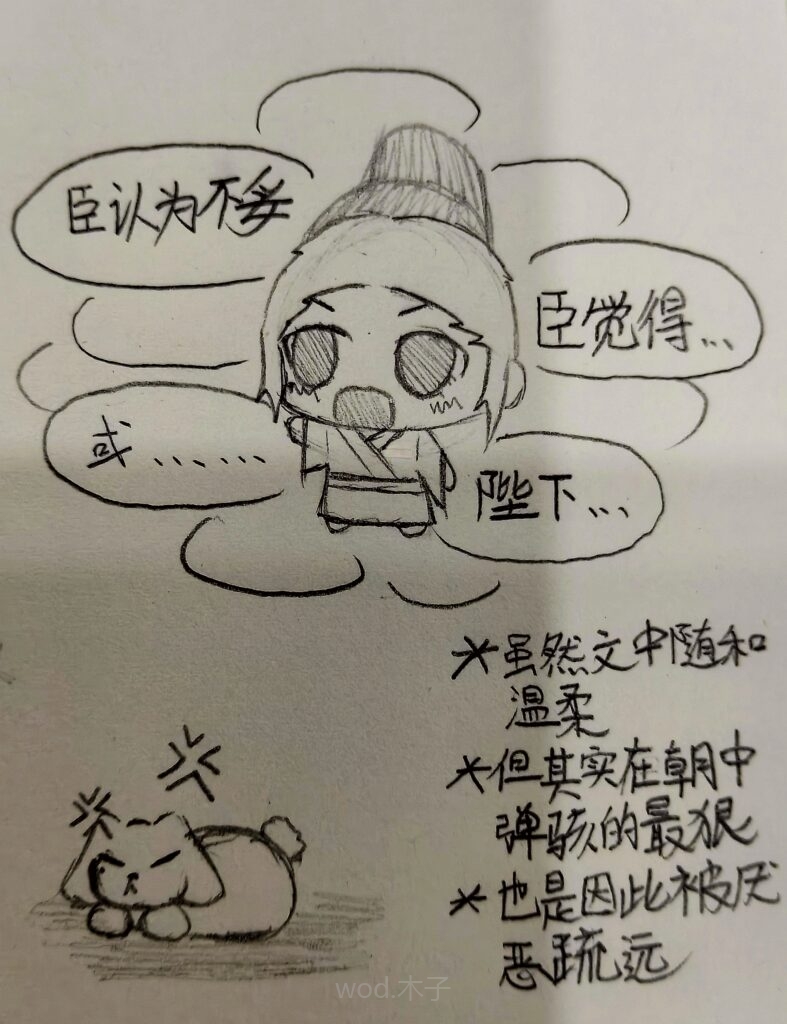 臣认为不妥
臣觉得...
或......
陛下...
*虽然文中随和
温柔
*但其实在朝中
弹骇的最狠
*也是因此被厌
恶疏远
wod.木子